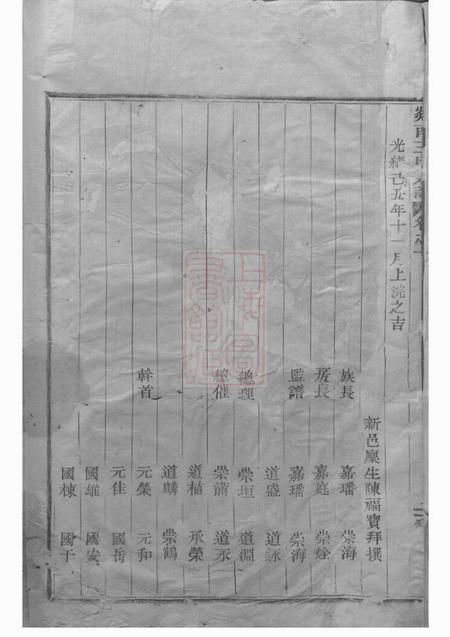 光緒己丑年十一月上浣之吉
新邑廩生陳福寶拜撰
族長 嘉璠 崇海
房長 嘉庭 崇烇
監譜 嘉璠 崇海
道盛 道詠
總理 崇垣 道淵
總催 崇滿 道承
道植 承榮
道麟 崇鶴
幹首 元榮 元和
元佳 國岳
國雄 國安
國棟 國干
上海圖書館